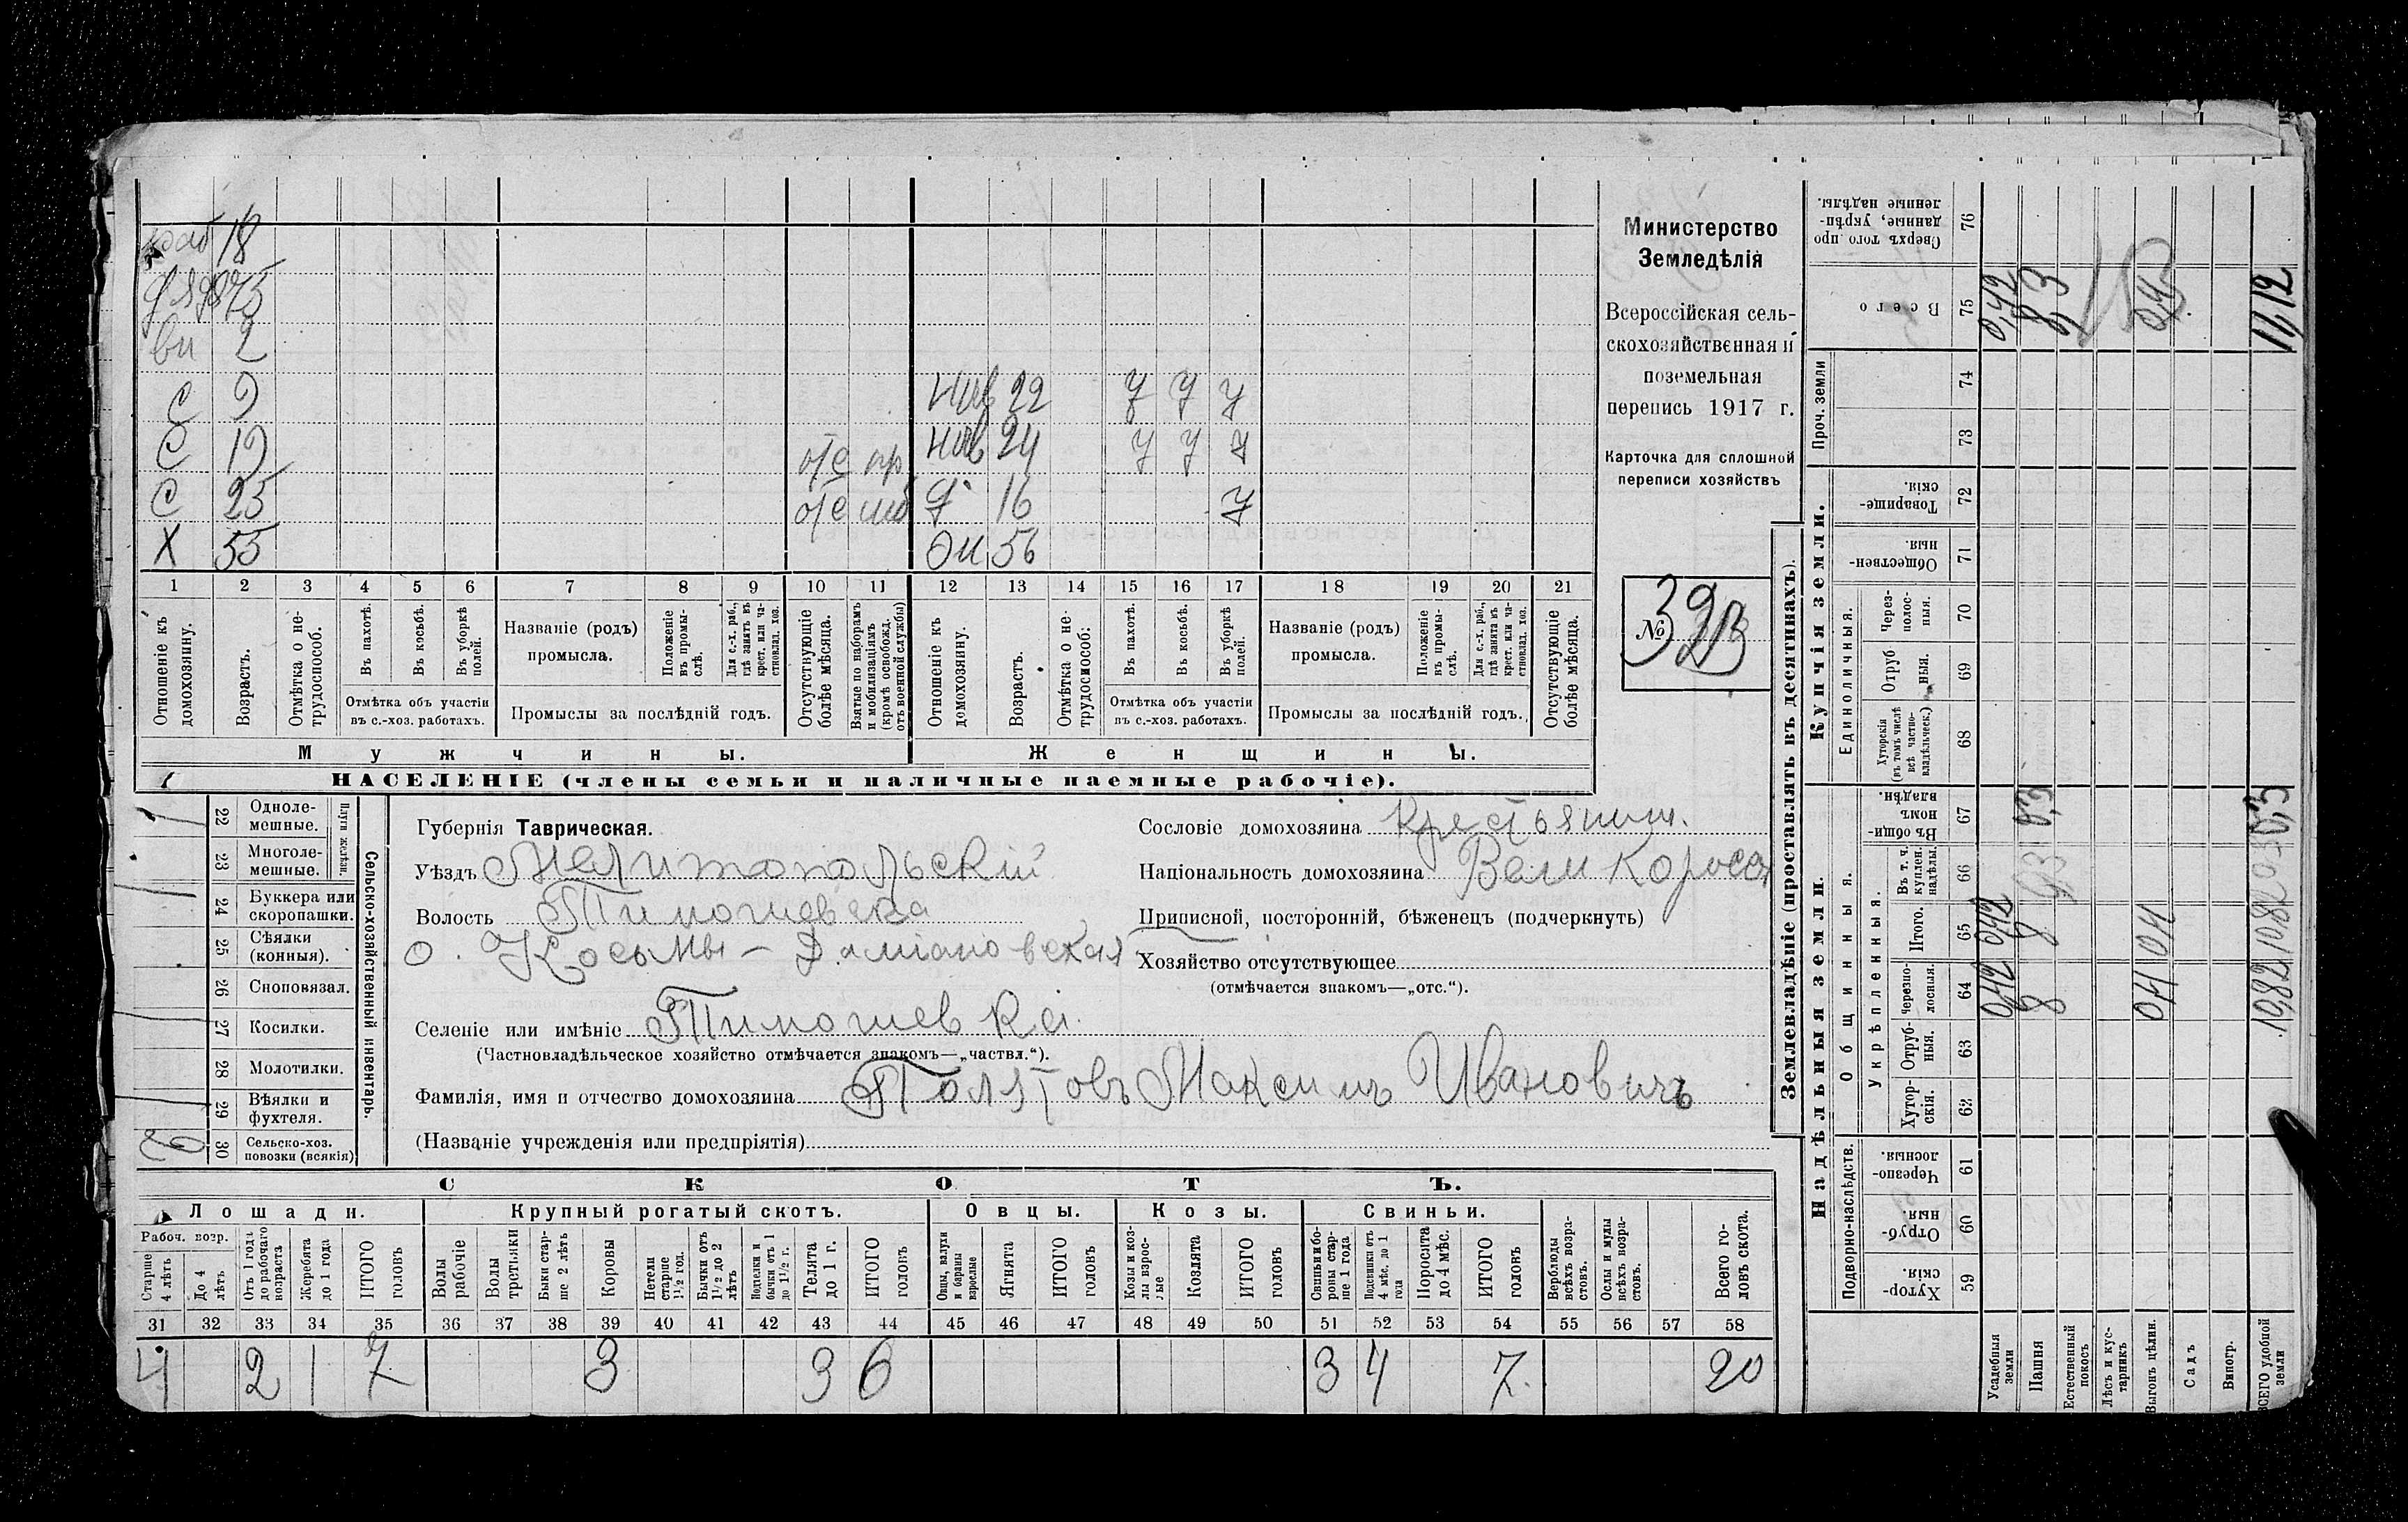 раб 18
75
вн 2
С 9 нев 22 7 7 7
С 19 отс пр нев 24 7 7 7
С 25 отс моб д 16 7
Х 55 он 56
1 2 3 4 5 6 7 8 9 10 11 12 13 14 15 16 17 18 19 20 21
Отношеніе къ домохозяину.
Возрастъ.
Отмѣтка о нетрудоспособ.
Въ пахотѣ.
Въ косьбѣ.
Въ уборкѣ полей.
Отмѣтка объ участіи въ с.-хоз. работахъ.
Названіе (родъ) промысла.
Положеніе въ промыслѣ.
Для с.-х. раб., гдѣ занятъ въ крест. или частновлад. хоз.
Промыслы за послѣдній годъ.
Отсутствующіе болѣе мѣсяца.
Взятые по наборамъ и мобилизаціямъ (кромѣ освобожд. отъ военной службы)
Отношеніе къ домохозяину.
Возрастъ.
Отмѣтка о нетрудоспособ.
Въ пахотѣ.
Въ косьбѣ.
Въ уборкѣ полей.
Отмѣтка объ участіи въ с.-хоз. работахъ.
Названіе (родъ) промысла.
Положеніе въ промыслѣ.
Для с.-х. раб., гдѣ занята въ крест. или частновлад. хоз.
Промыслы за послѣдній годъ.
Отсутствующіе болѣе мѣсяца.
Мужчины. Женщины.
НАСЕЛЕНІЕ (члены семьи и наличные наемные рабочіе).
Министерство
Земледѣлія
Всероссійская сель-
скохозяйственная и
поземельная
перепись 1917 г.
Карточка для сплошной
переписи хозяйствъ
№ 392
22 Одноле-мешные.
23 Многоле-мешные.
Плуги желѣзн.
24 Буккера или скоропашки.
25 Сѣялки (конныя).
26 Сноповязал.
27 Косилки.
28 Молотилки.
29 Вѣялки и фухтеля.
30 Сельско-хоз. повозки (всякія)
Сельско-хозяйственный инвентарь.
Губернія Таврическая.
Уѣздъ Мелитопольскій
Волость Тимошевска
о. Косьмы-Даміановская
Селеніе или имѣніе Тимошевка
(Частновладѣльческое хозяйство отмѣчается знакомъ—„частвл.“).
Фамилія, имя и отчество домохозяина Полятовъ Максимъ Ивановичъ
(Названіе учрежденія или предпріятія)
Сословіе домохозяина Крестьянин.
Національность домохозяина Великоросс
Приписной, посторонній, бѣженецъ (подчеркнуть)
Хозяйство отсутствующее
(отмѣчается знакомъ—„отс.“).
СКОТЪ.
Лошади. Крупный рогатый скотъ. Овцы. Козы. Свиньи.
Рабоч. возр.
Старше 4 лѣтъ
До 4 лѣтъ
Отъ 1 года до рабочаго возраста
Жеребята до 1 года
ИТОГО головъ
Волы рабочіе
Волы третьяки
Быки старше 2 лѣтъ
Коровы
Нетели старше 1½ год.
Бычки отъ 1½ до 2 лѣтъ
Подтелки и бычки отъ 1 до 1½ г.
Телята до 1 г.
ИТОГО головъ
Овцы, валухи и бараны взрослые
Ягнята
ИТОГО головъ
Козы и козлы взрослые
Козлята
ИТОГО головъ
Свиньи и боровы старше 1 года
Подсвинки отъ 4 мѣс. до 1 года
Поросята до 4 мѣс.
ИТОГО головъ
Верблюды всѣхъ возрастовъ.
Ослы и мулы всѣхъ возрастовъ.
Всего головъ скота.
31 32 33 34 35 36 37 38 39 40 41 42 43 44 45 46 47 48 49 50 51 52 53 54 55 56 57 58
4 2 1 7 3 3 6 3 4 7 20
Землевладѣніе (проставлять въ десятинахъ).
Купчія земли.
Надѣльныя земли.
Сверхъ того проданные, укрѣпленные надѣлы. 76
Всего 75 0,42 8,3 11,12
Проч. земли 74 73
Товарищескія. 72
Общественныя. 71
Единоличныя.
Черезполосныя. 70
Отрубныя. 69
Хуторскія (въ томъ числѣ всѣ частновладѣльческ.) 68
Общинныя.
Въ общинномъ владѣн. 67 0,3
Укрѣпленныя.
Въ т. ч. куплен. надѣлы. 66
Итого. 65 0,42 8
Черезполосныя. 64 0,42 8 10,82
Отрубныя. 63
Хуторскія. 62
Подворно-наслѣдств.
Черезполосныя. 61
Отрубныя. 60
Хуторскія. 59
Усадебныя земли
Пашня
Естественный покосъ
Лѣсъ и кустарникъ
Выгонъ цѣлин.
Садъ
Виногр.
ВСЕГО удобной земли